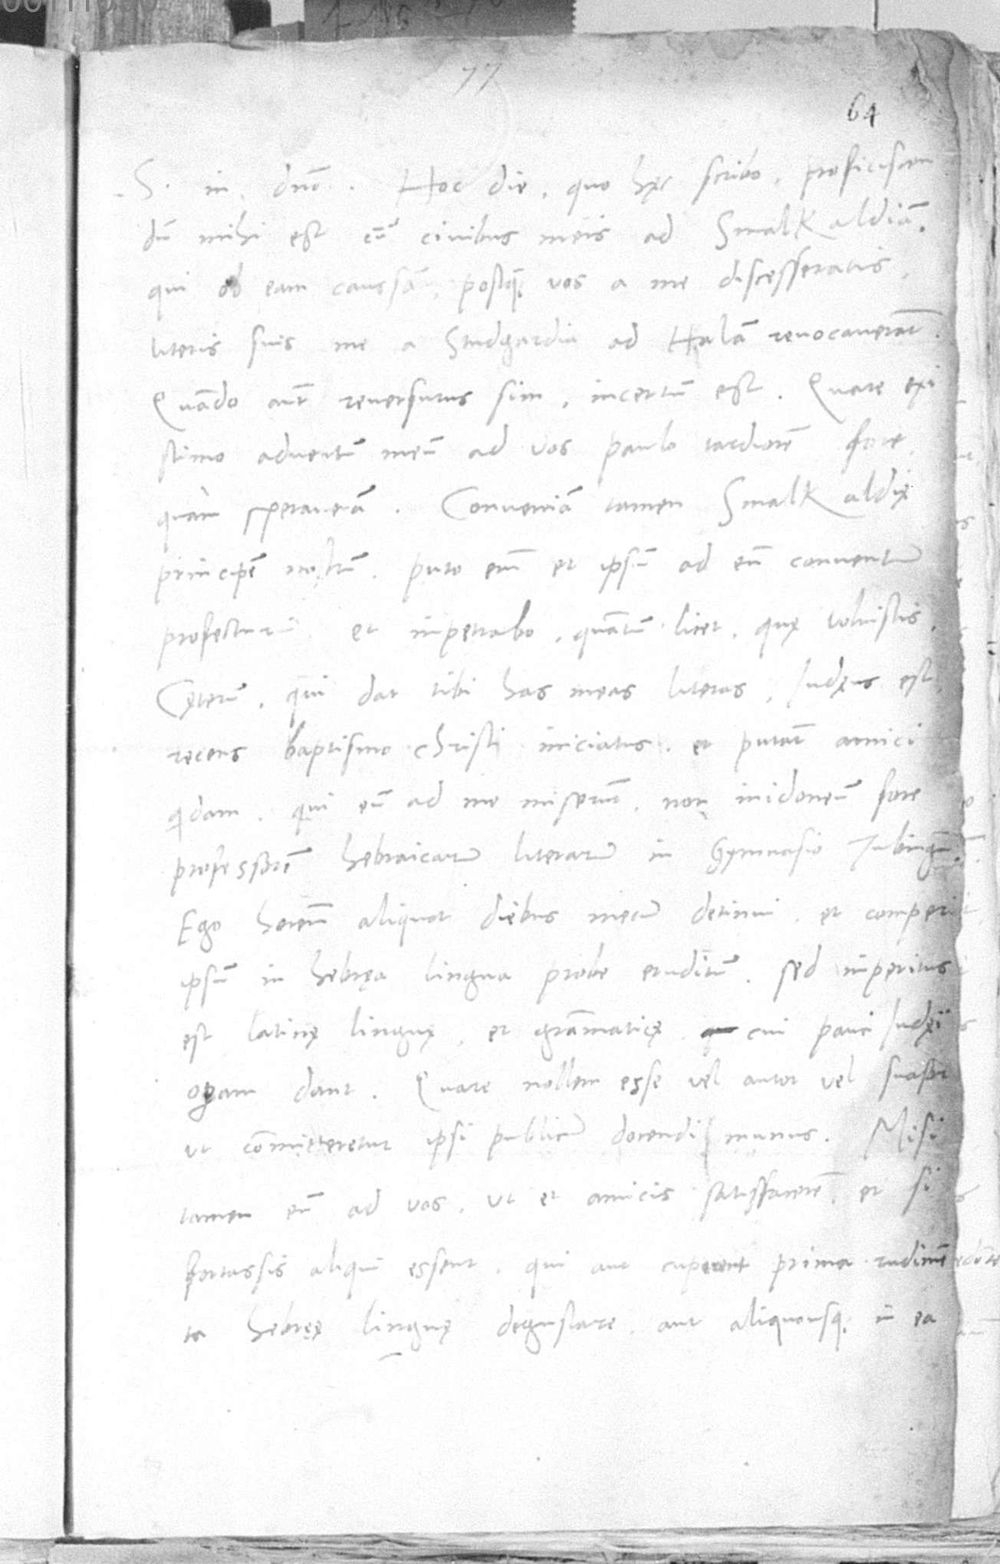 77
64
S. in dno. Hoc die, quo hęc scribo, proficiscen
dū mihi est cū civibus meis ad Smalkaldiā,
qui ob eam caussā, postq̄ vos a me discesseratis,
literis suis me a Studgardia ad Halā revocaverāt.
Quādo aūt reversurus sim, incertū est. Quare exi
stimo adventū meū ad vos paulo tardiorē fore,
quàm speraverā. Conveniā tamen Smalkaldię
principē nostrū, puto enī et ipsū ad eū conventū
profecturū et impetrabo, quātū licet, quę voluistis.
Cęterū, qui dat tibi has meas literas, Iudęus est,
recens baptismo Christi iniciatus, et putāt amici
qdam, qui eū ad me miserūt, non inidoneū fore
professorē hebraicarū literarū in Gymnasio Tubingēn.
Ego hominē aliquot diebus mecū detinui, et comperi
ipsū in hebręa lingua probe eruditū, sed imperitus
est latinę linguę, et grāmaticę cui pauci Iudęi
operam dant. Quare nollem esse vel autor vel suasor
ut cōmitteretur ipsi publicū docendi munus. Misi
tamen eū ad vos, ut et amicis satisfacerē, et si
fortassis aliqui essent, qui aut cuperent prima rudimē
ta hebręę linguę degustare, aut aliquousq; in ea